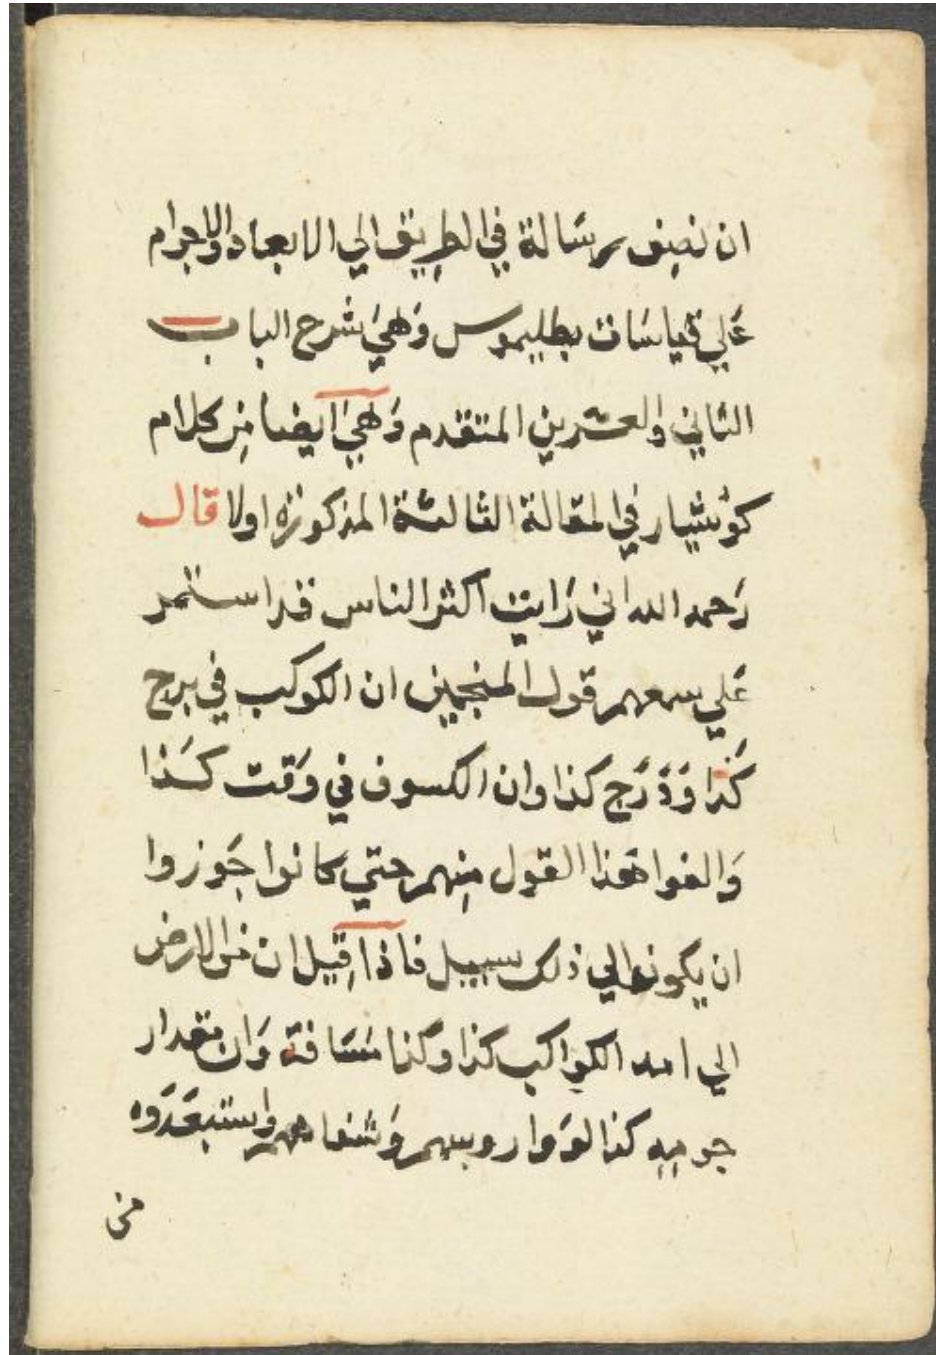 ان نضيف رسالة في الطريق الي الابعاد والاجرام
علي قياسات بطليموس وهي شرح الباب
الثاني والعشرين المتقدم وهي ايضا من كلام
كوشيار في المقالة الثالثة المذكورة اولا قال
رحمه الله اني رايت اكثر الناس قد استمر
علي سمعهم قول المنجمين ان الكوكب في برج
كذا ودرج كذا وان الكسوف في وقت كذا
والفوا هذا القول منهم حتي كانوا جوزوا
ان يكون الي ذلك سبيل فاذا قيل ان من الارض
الي احد الكواكب كذا وكذا مسافة وان مقدار
جرمه كذا لووا روسهم وشفاههم واستبعدوه
من